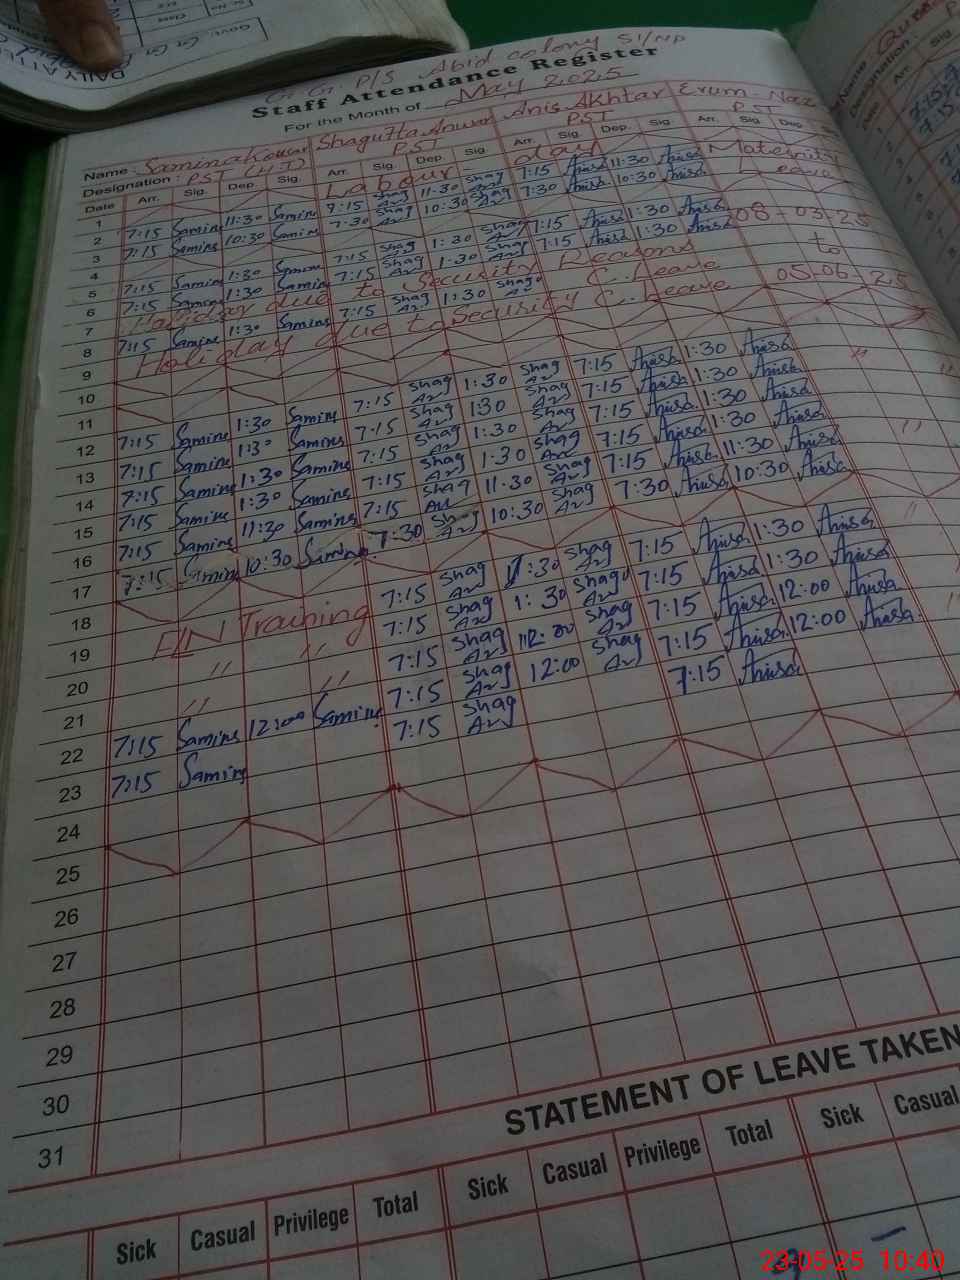 G.G. P/S Abid colony S1/NP
Staff Attendance Register
For the Month of May 2025
Name: Samina Kousar Shagufta Anwar Anis Akhtar Erum-Naz
Designation: PST (HT) PST PST PST
Date Arr. Sig. Dep. Sig. Arr. Sig. Dep. Sig. Arr. Sig. Dep. Sig. Arr. Sig. Dep.
1 Labour day Maternity
2 7:15 Samina 11:30 Samina 7:15 Shag An 11:30 Shag An 7:15 Anisa 11:30 Anisa Leave
3 7:15 Samina 10:30 Samina 7:30 Shag An 10:30 Shag An 7:30 Anisa 10:30 Anisa
4 08-05-25
5 7:15 Samina 1:30 Samina 7:15 Shag An 1:30 Shag An 7:15 Anisa 1:30 Anisa to
6 7:15 Samina 1:30 Samina 7:15 Shag An 1:30 Shag An 7:15 Anisa 1:30 Anisa 05-06-25
7 Holiday due to Security Reasons
8 7:15 Samina 1:30 Samina 7:15 Shag An 1:30 Shag An C. Leave
9 Holiday due to Security C. Leave
10
11
12 7:15 Samina 1:30 Samina 7:15 Shag An 1:30 Shag An 7:15 Anisa 1:30 Anisa
13 7:15 Samina 1:30 Samina 7:15 Shag An 1:30 Shag An 7:15 Anisa 1:30 Anisa
14 7:15 Samina 1:30 Samina 7:15 Shag An 1:30 Shag An 7:15 Anisa 1:30 Anisa
15 7:15 Samina 1:30 Samina 7:15 Shag An 1:30 Shag An 7:15 Anisa 1:30 Anisa
16 7:15 Samina 11:30 Samina 7:15 Shag An 11:30 Shag An 7:15 Anisa 11:30 Anisa
17 7:15 Samina 10:30 Samina 7:30 Shag An 10:30 Shag An 7:30 Anisa 10:30 Anisa
18
19 FLN Training 7:15 Shag An 1:30 Shag An 7:15 Anisa 1:30 Anisa
20 " " 7:15 Shag An 1:30 Shag An 7:15 Anisa 1:30 Anisa
21 " " 7:15 Shag An 12:00 Shag An 7:15 Anisa 12:00 Anisa
22 7:15 Samina 12:00 Samina 7:15 Shag An 12:00 Shag An 7:15 Anisa 12:00 Anisa
23 7:15 Samina 7:15 Shag An 7:15 Anisa
24
25
26
27
28
29
30
31
STATEMENT OF LEAVE TAKEN
Sick Casual Privilege Total Sick Casual Privilege Total Sick Casual
23-05-25 10:40